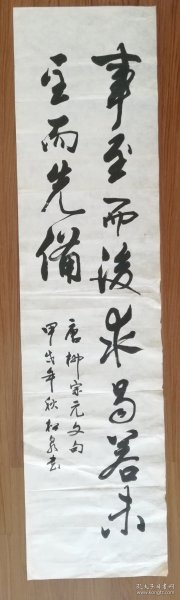 事至而後求曷若未
至而先備
唐柳宗元文句
甲戌年秋松泉书